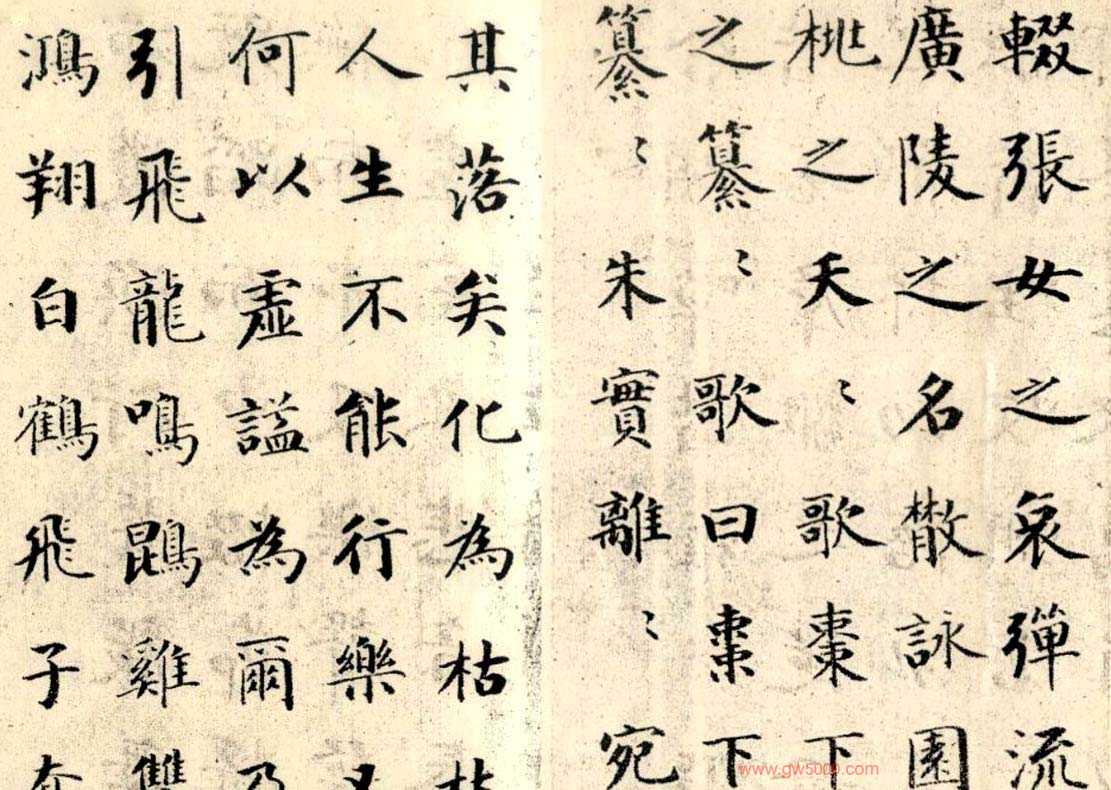 輟張女之哀彈流
廣陵之名散詠園
桃之夭〻歌棗下
之纂〻歌曰棗下
纂〻朱實離〻宛
其落矣化為枯
人生不能行樂
何以虛謚為爾乃
引飛龍鳴鵾雞雙
鴻翔白鶴飛子
www.gw5000.com